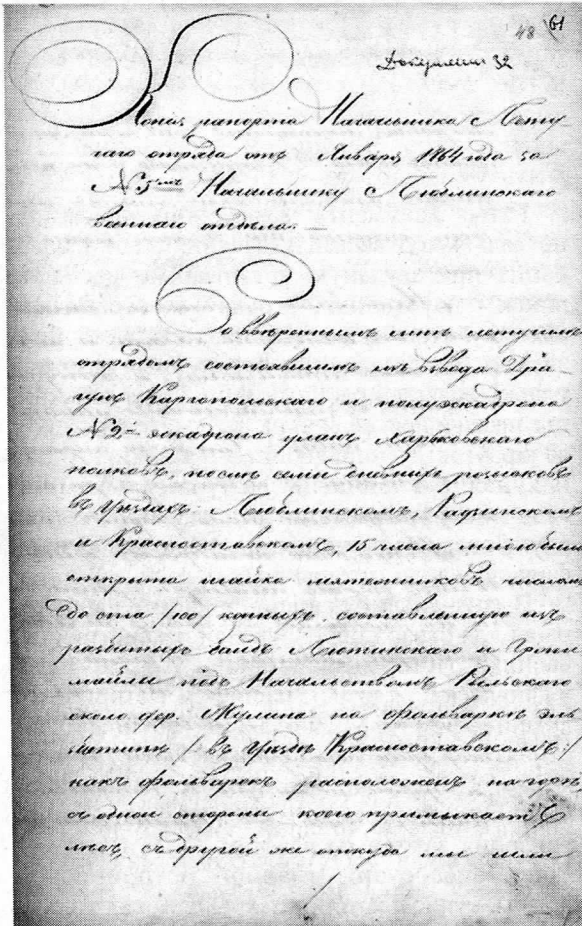 48 61
Документ 32
Копія рапорта Начальника Лету-
чаго отряда отъ Января 1864 года за
№ 5мъ Начальнику Люблинскаго
военнаго отдѣла. —
Со ввѣреннымъ мнѣ летучимъ
отрядомъ состоявшимъ изъ взвода Дра-
гунъ Каргопольскаго и полуэскадрона
№ 2го эскадрона уланъ Харьковскаго
полковъ, послѣ семи дневныхъ розысковъ
въ Уѣздахъ: Люблинскомъ, Радзинскомъ
и Красноставскомъ, 15 числа мною была
открыта шайка мятежниковъ числомъ
до ста /100/ конныхъ, составленную изъ
разбитыхъ бандъ Лютинскаго и
подъ Начальствомъ Рильскаго
около дер. Жулина на фольваркѣ
/: въ Уѣздѣ Красноставскомъ :/
какъ фольварокъ расположенъ на горѣ,
съ одной стороны коего примыкаетъ
лѣсъ, съ другой же откуда мы шли